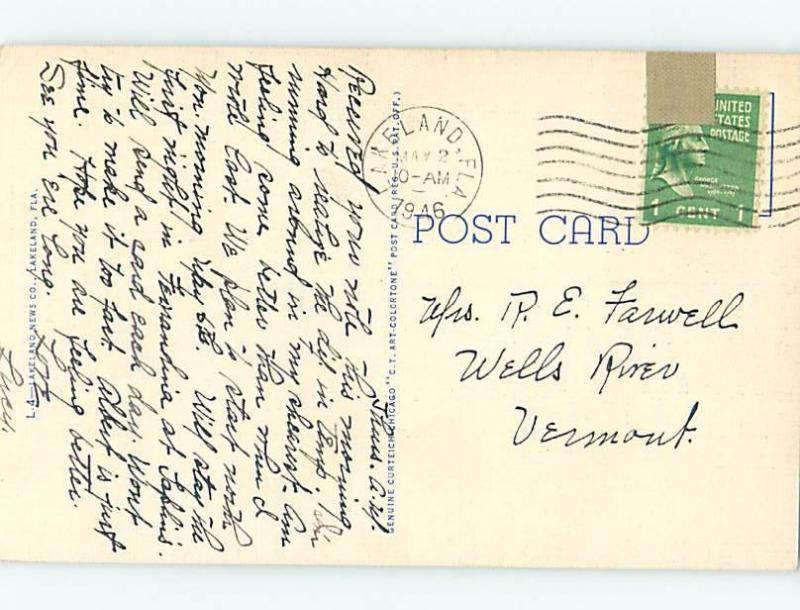 Thurs. A.M.
Received your note this morning
Hard to realize the dif in temp. I'm
running around in my sheerest. Am
feeling some better than when I
wrote last. We plan to start north
Mon. morning May 6th. Will stay the
first night in Fernandina at
Will send a card each day. Wont
try to make it too fast. Albert is just
fine. Hope you are feeling better.
See you ere long.
Love
Lucy.
L.4—LAKELAND NEWS CO., LAKELAND, FLA.
GENUINE CURTEICH-CHICAGO "C.T. ART-COLORTONE" POST CARD (REG. U.S. PAT. OFF.)
LAKELAND, FLA.
MAY 2
10-AM
1946
UNITED
STATES
POSTAGE
GEORGE
1 CENT 1
POST CARD
Mrs. R. E. Farwell
Wells River
Vermont.